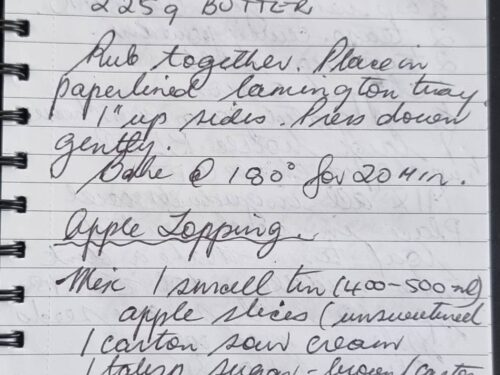 225g BUTTER
Rub together. Place in
paperlined lamington tray
1" up sides. Press down
gently.
Bake @ 180° for 20 MIN.
Apple Topping.
Mix 1 small tin (400-500 ml)
apple slices (unsweetened
1 carton sour cream
1 tblsp sugar - brown/castor